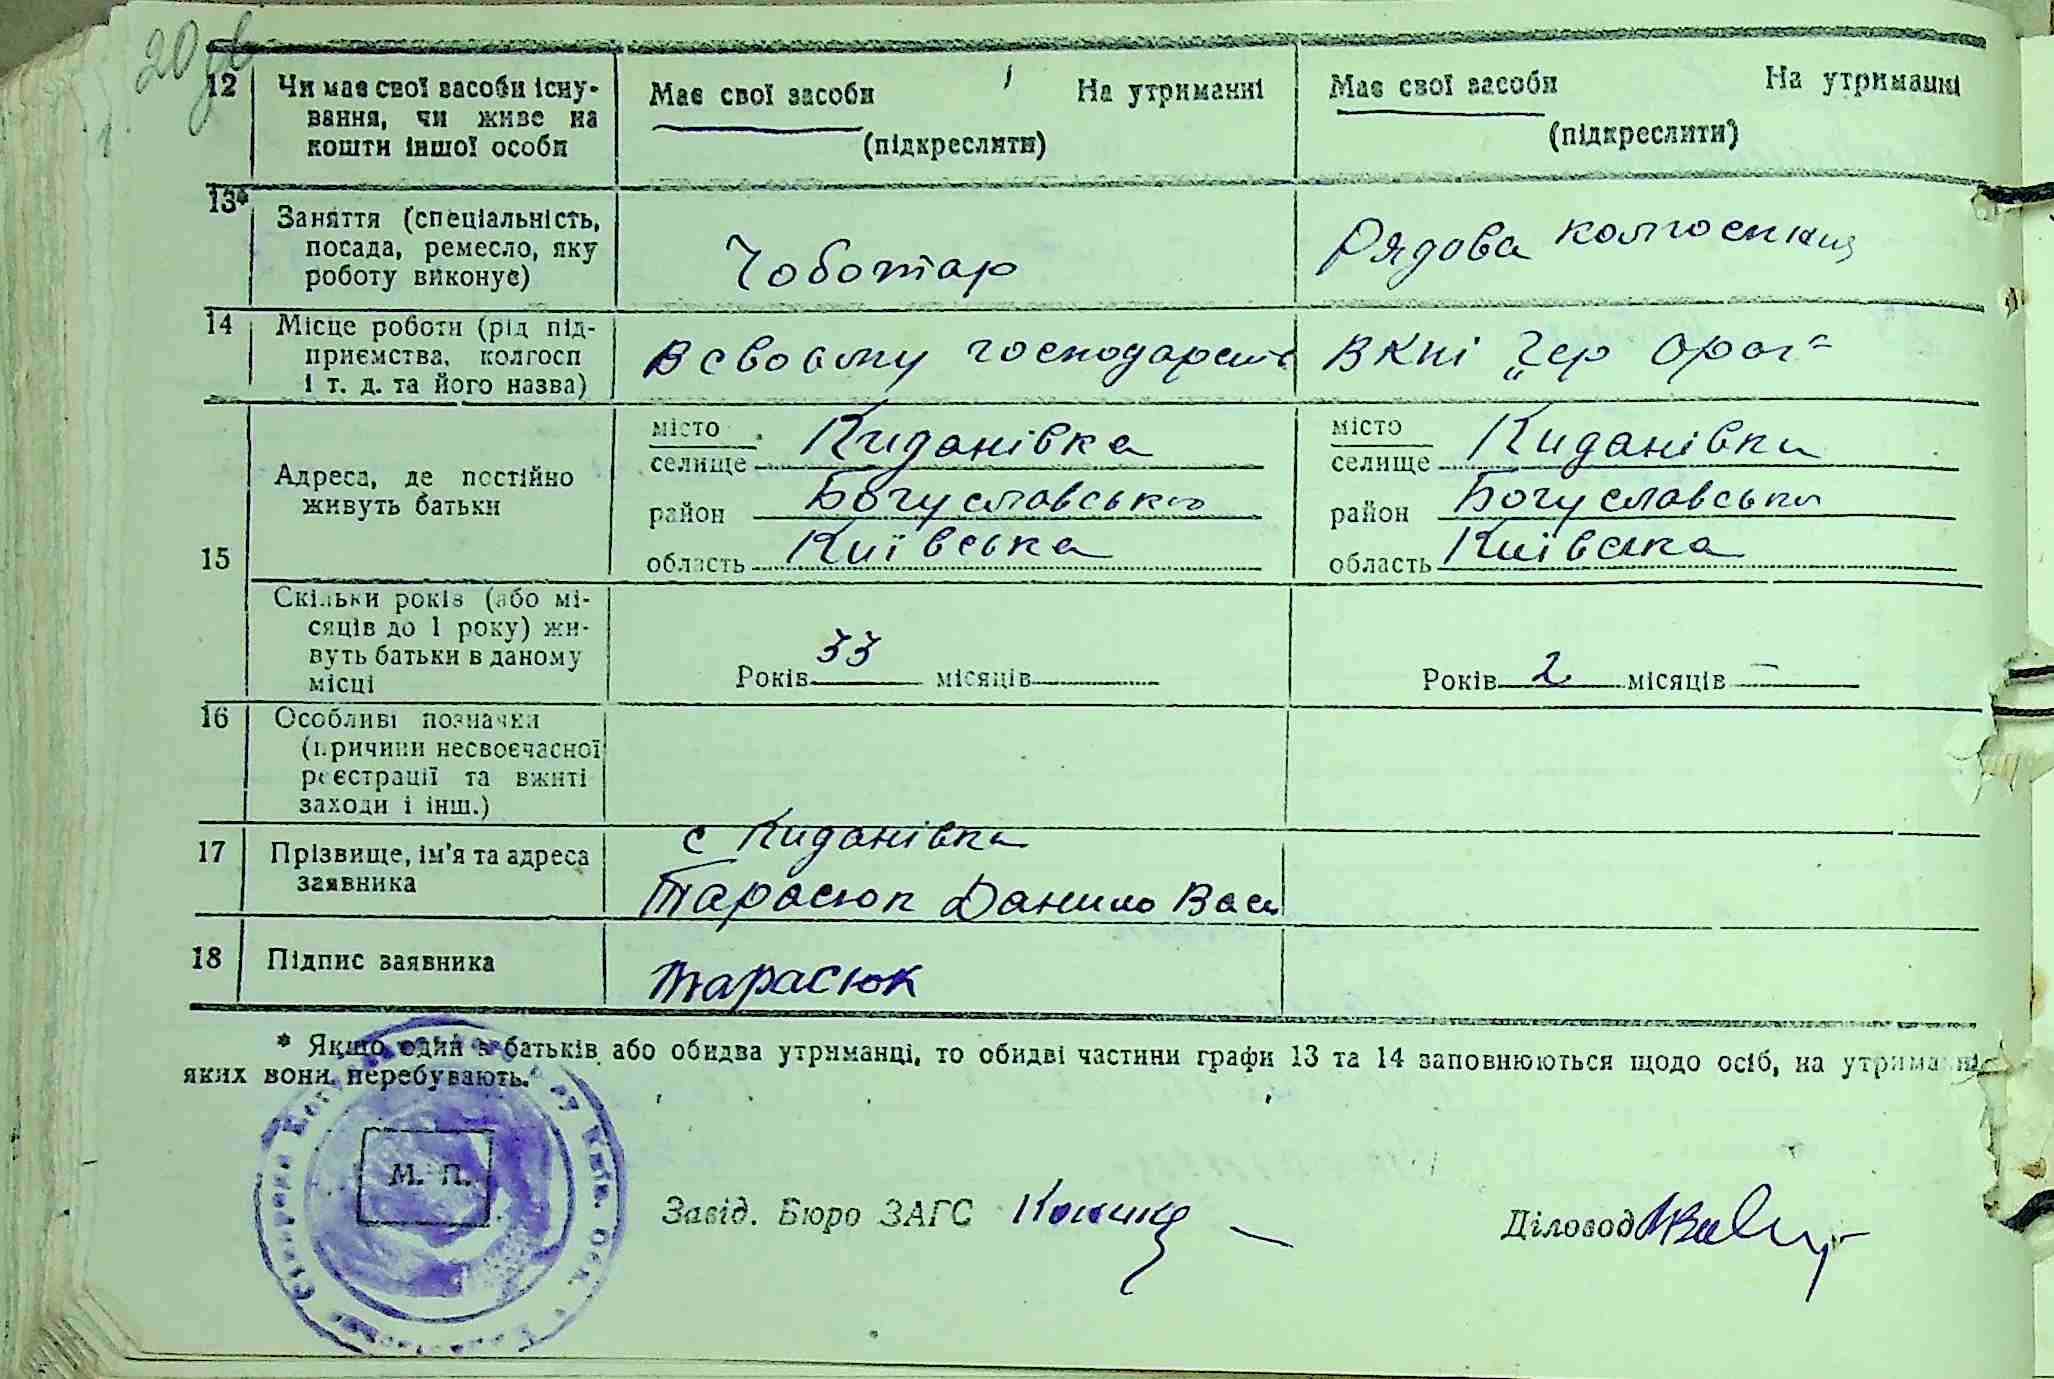 20
12 Чи має свої засоби існу-
вання, чи живе на
кошти іншої особи
Має свої засоби На утриманні
(підкреслити)
Має свої засоби На утриманні
(підкреслити)
13* Заняття (спеціальність,
посада, ремесло, яку
роботу виконує)
Чоботар
Рядова колгоспниця
14 Місце роботи (рід під-
приємства, колгосп
і т. д. та його назва)
В своєму господарстві
В к-пі „Чер Орач"
15 Адреса, де постійно
живуть батьки
місто
селище Киданівка
район Богуславський
область Київська
місто
селище Киданівка
район Богуславський
область Київська
Скільки років (або мі-
сяців до 1 року) жи-
вуть батьки в даному
місці
Років 33 місяців
Років 2 місяців —
16 Особливі позначки
(причини несвоєчасної
реєстрації та вжиті
заходи і інш.)
17 Прізвище, ім'я та адреса
заявника
с Киданівка
Тарасюк Данило Вас
18 Підпис заявника
Тарасюк
* Якщо один з батьків або обидва утриманці, то обидві частини графи 13 та 14 заповнюються щодо осіб, на утриманні
яких вони перебувають.
М. П.
Завід. Бюро ЗАГС
Діловод